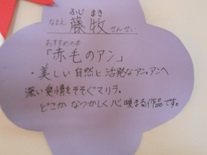 ふじ まき
なまえ 藤牧 せんせい
おすすめの本
「赤毛のアン」
・美しい自然と活発なアン。アンへ
深い愛情をそそぐマリラ。
どこかなつかしく心暖まる作品です。